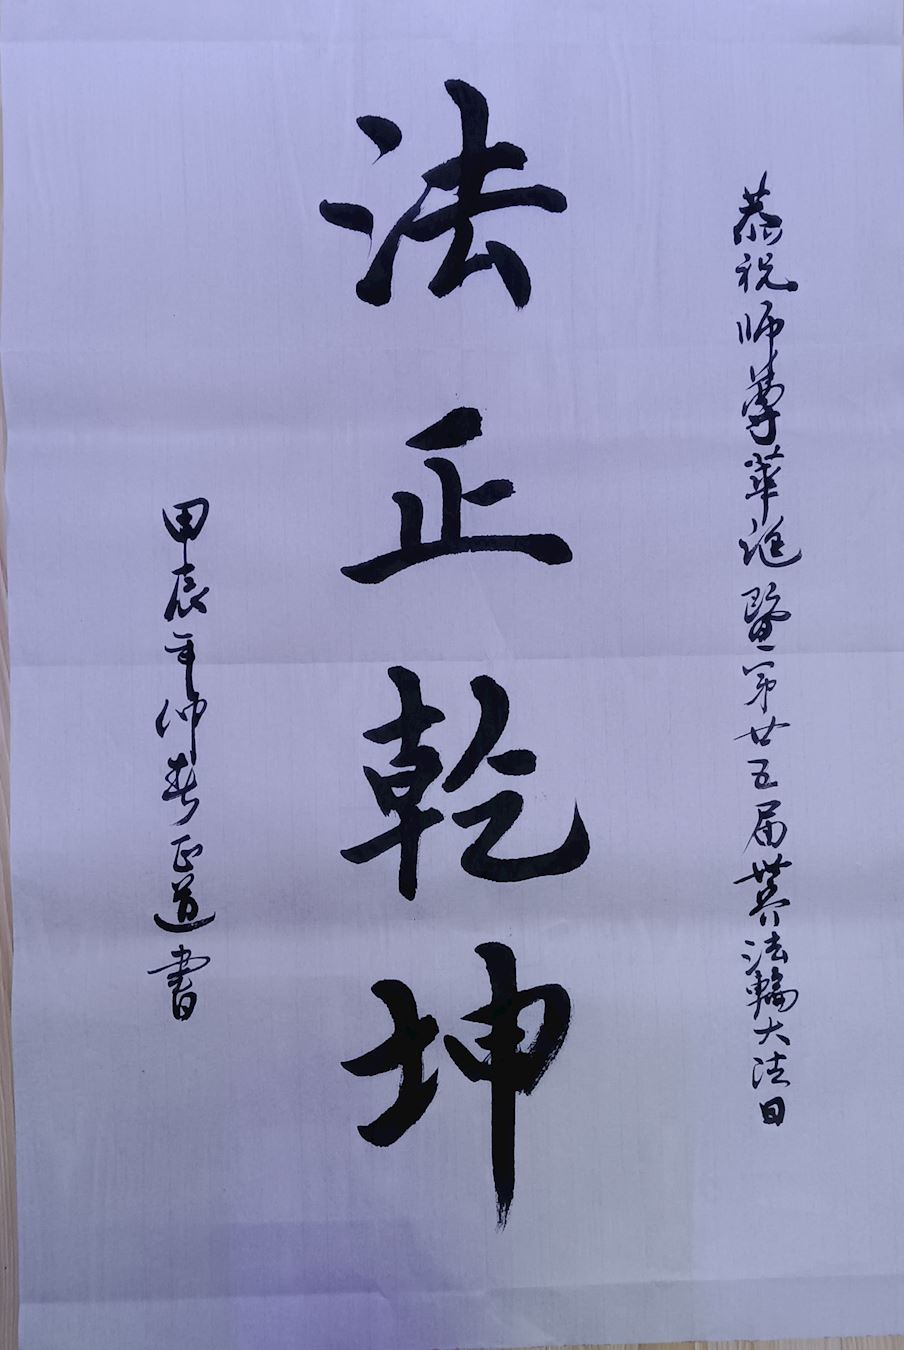 恭祝师尊華誕暨第廿五届世界法輪大法日
法正乾坤
甲辰年仲春正道書